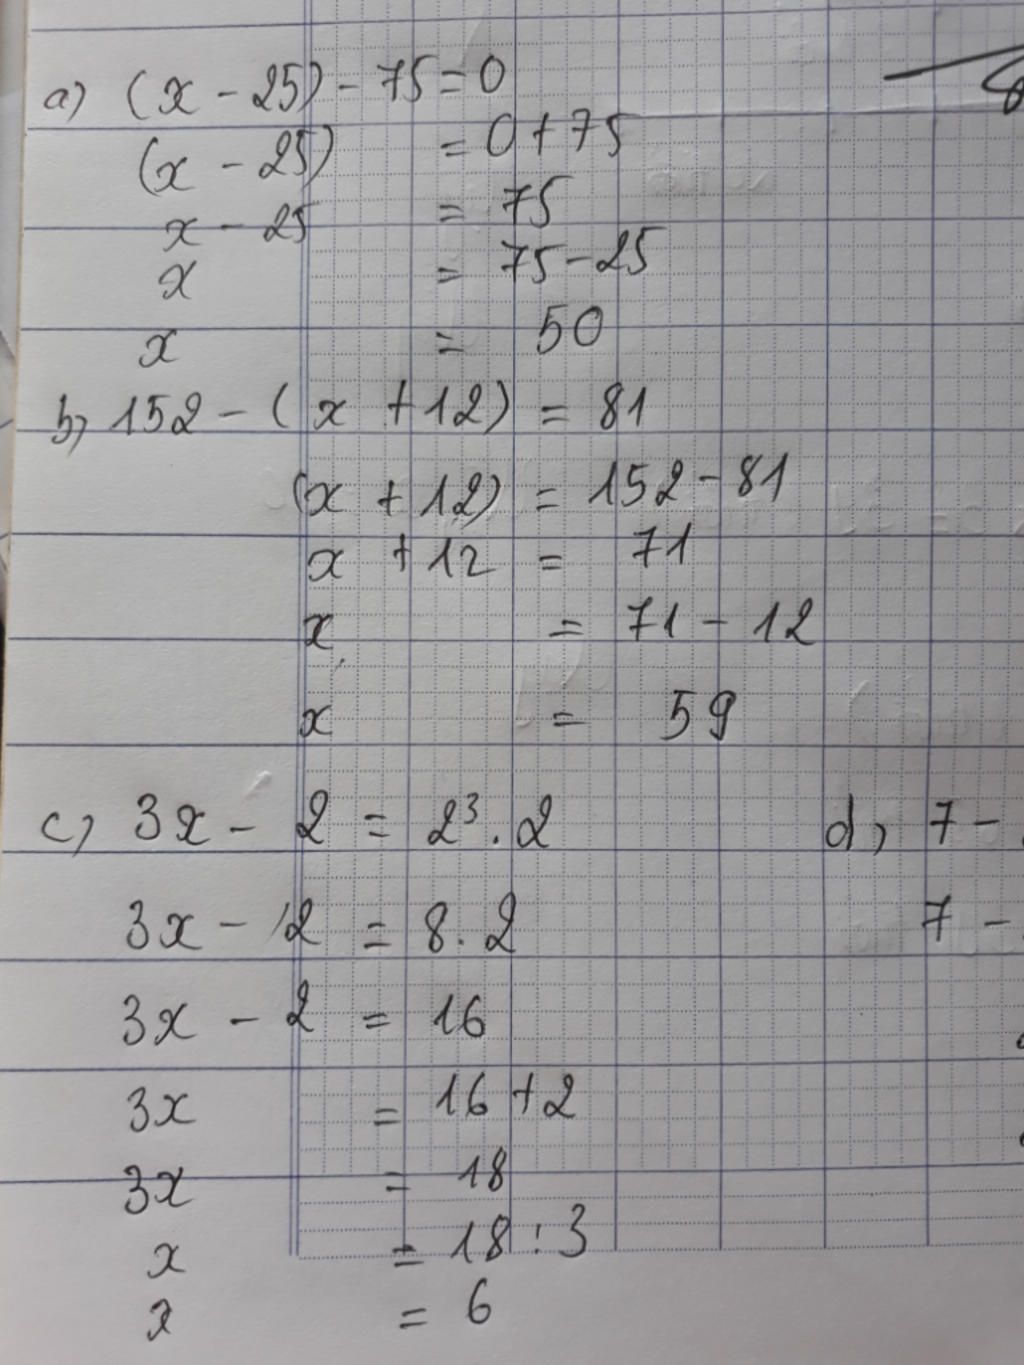 a) (x - 25) - 75 = 0
(x - 25) = 0 + 75
x - 25 = 75
x = 75 - 25
x = 50
b, 152 - ( x + 12) = 81
(x + 12) = 152 - 81
x + 12 = 71
x = 71 - 12
x = 59
c, 3x - 2 = 2³ . 2
3x - 2 = 8 . 2
3x - 2 = 16
3x = 16 + 2
3x = 18
x = 18 : 3
x = 6
d, 7 -
7 -